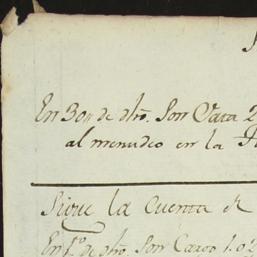 En 30 de dho. Son Data 2
al menudeo en la
Sigue la Cuenta de
En 1º de dho. Son Cargo 1.02